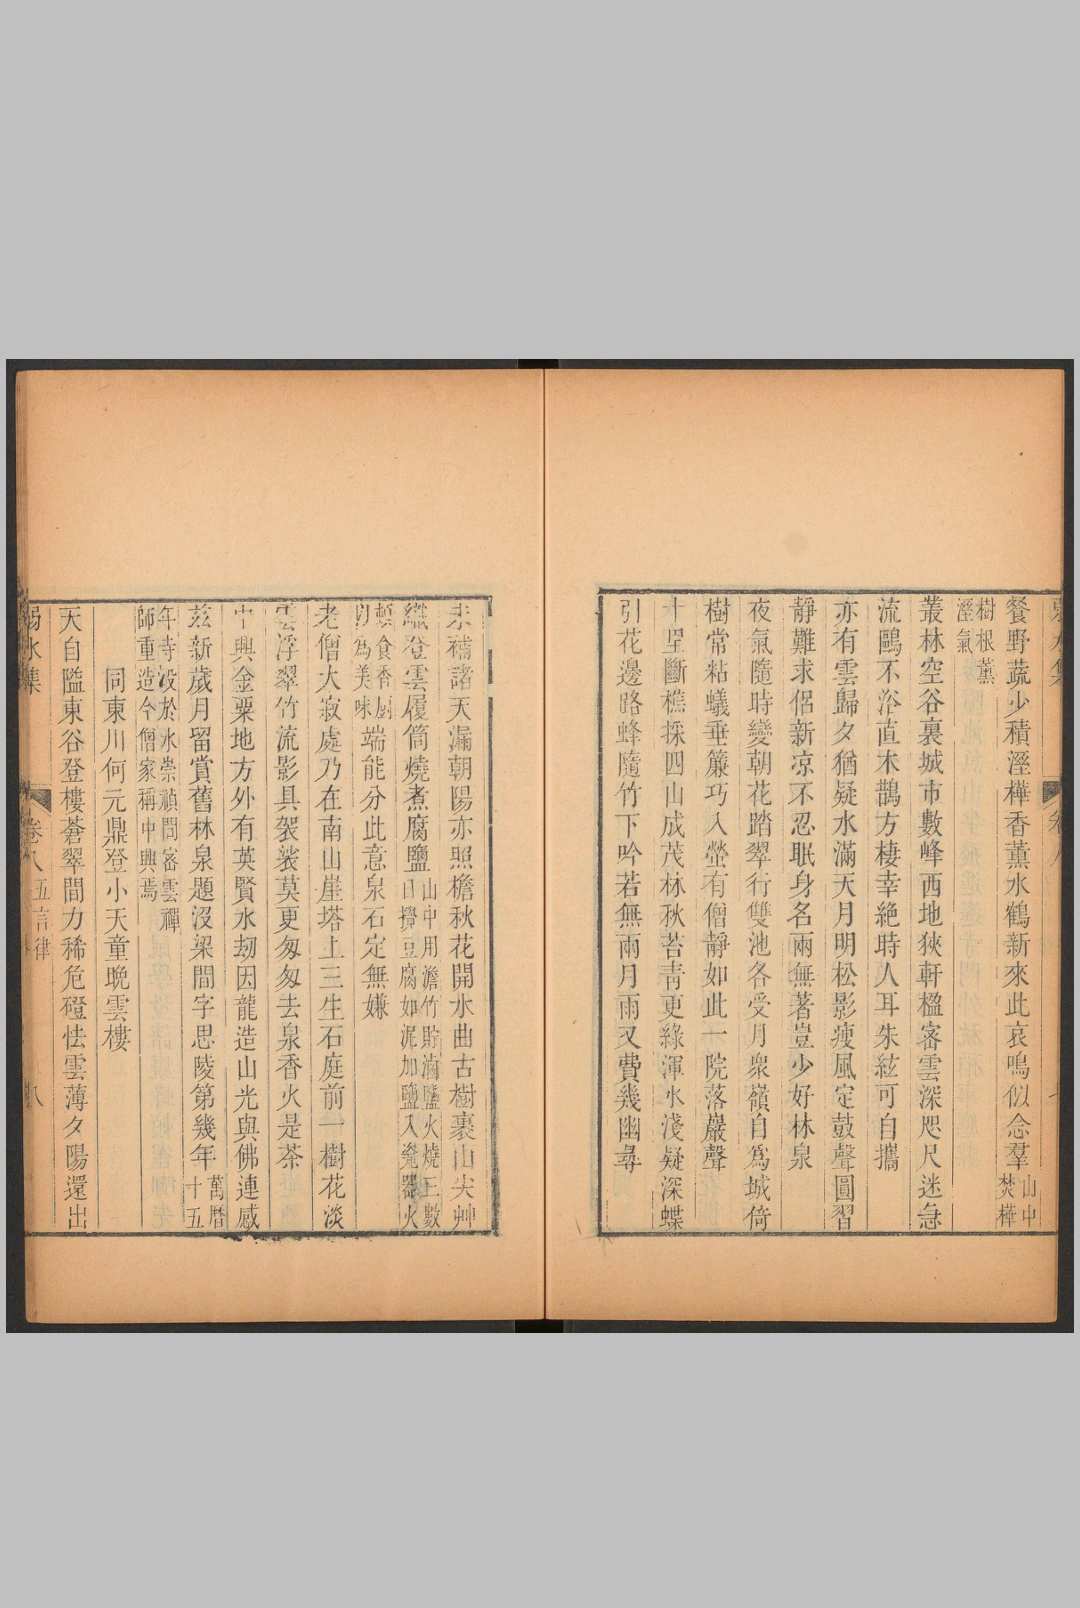 餐野蔬少積溼樺香薰水鶴新來此哀鳴似念羣山中焚樺
樹根薰溼氣
叢林空谷裏城市數峰西地狹軒楹密雲深咫尺迷急
流鷗不浴直木鵲方棲幸絶時人耳朱絃可自攜
亦有雲歸夕猶疑水滿天月明松影瘦風定鼓聲圓習
靜難求侶新凉不忍眠身名兩無著豈少好林泉
夜氣隨時變朝花踏翠行雙池各受月衆嶺自爲城倚
樹常粘蟻垂簾巧入螢有僧靜如此一院落巖聲
十里斷樵採四山成茂林秋苔靑更綠渾水淺疑深蝶
引花邊路蜂隨竹下吟若無兩月雨又費幾幽尋
未補諸天漏朝陽亦照檐秋花開水曲古樹裹山尖艸
織登雲履筒燒煮腐鹽山中用澹竹貯滷鹽火燒三數日攪豆腐如泥加鹽入甕器火
食香厨爲美味端能分此意泉石定無嫌
老僧大寂處乃在南山崖塔上三生石庭前一樹花淡
雲浮翠竹流影具袈裟莫更匆匆去泉香火是茶
中興金粟地方外有英賢水刼因龍造山光與佛連感
茲新歲月留賞舊林泉題沒梁間字思陵第幾年萬曆十五
年寺沒於水崇禎間密雲禪師重造今僧家稱中興焉
同東川何元鼎登小天童晚雲樓
天自隘東谷登樓蒼翠間力稀危磴怯雲薄夕陽還出
弱水集
卷八五言律
八